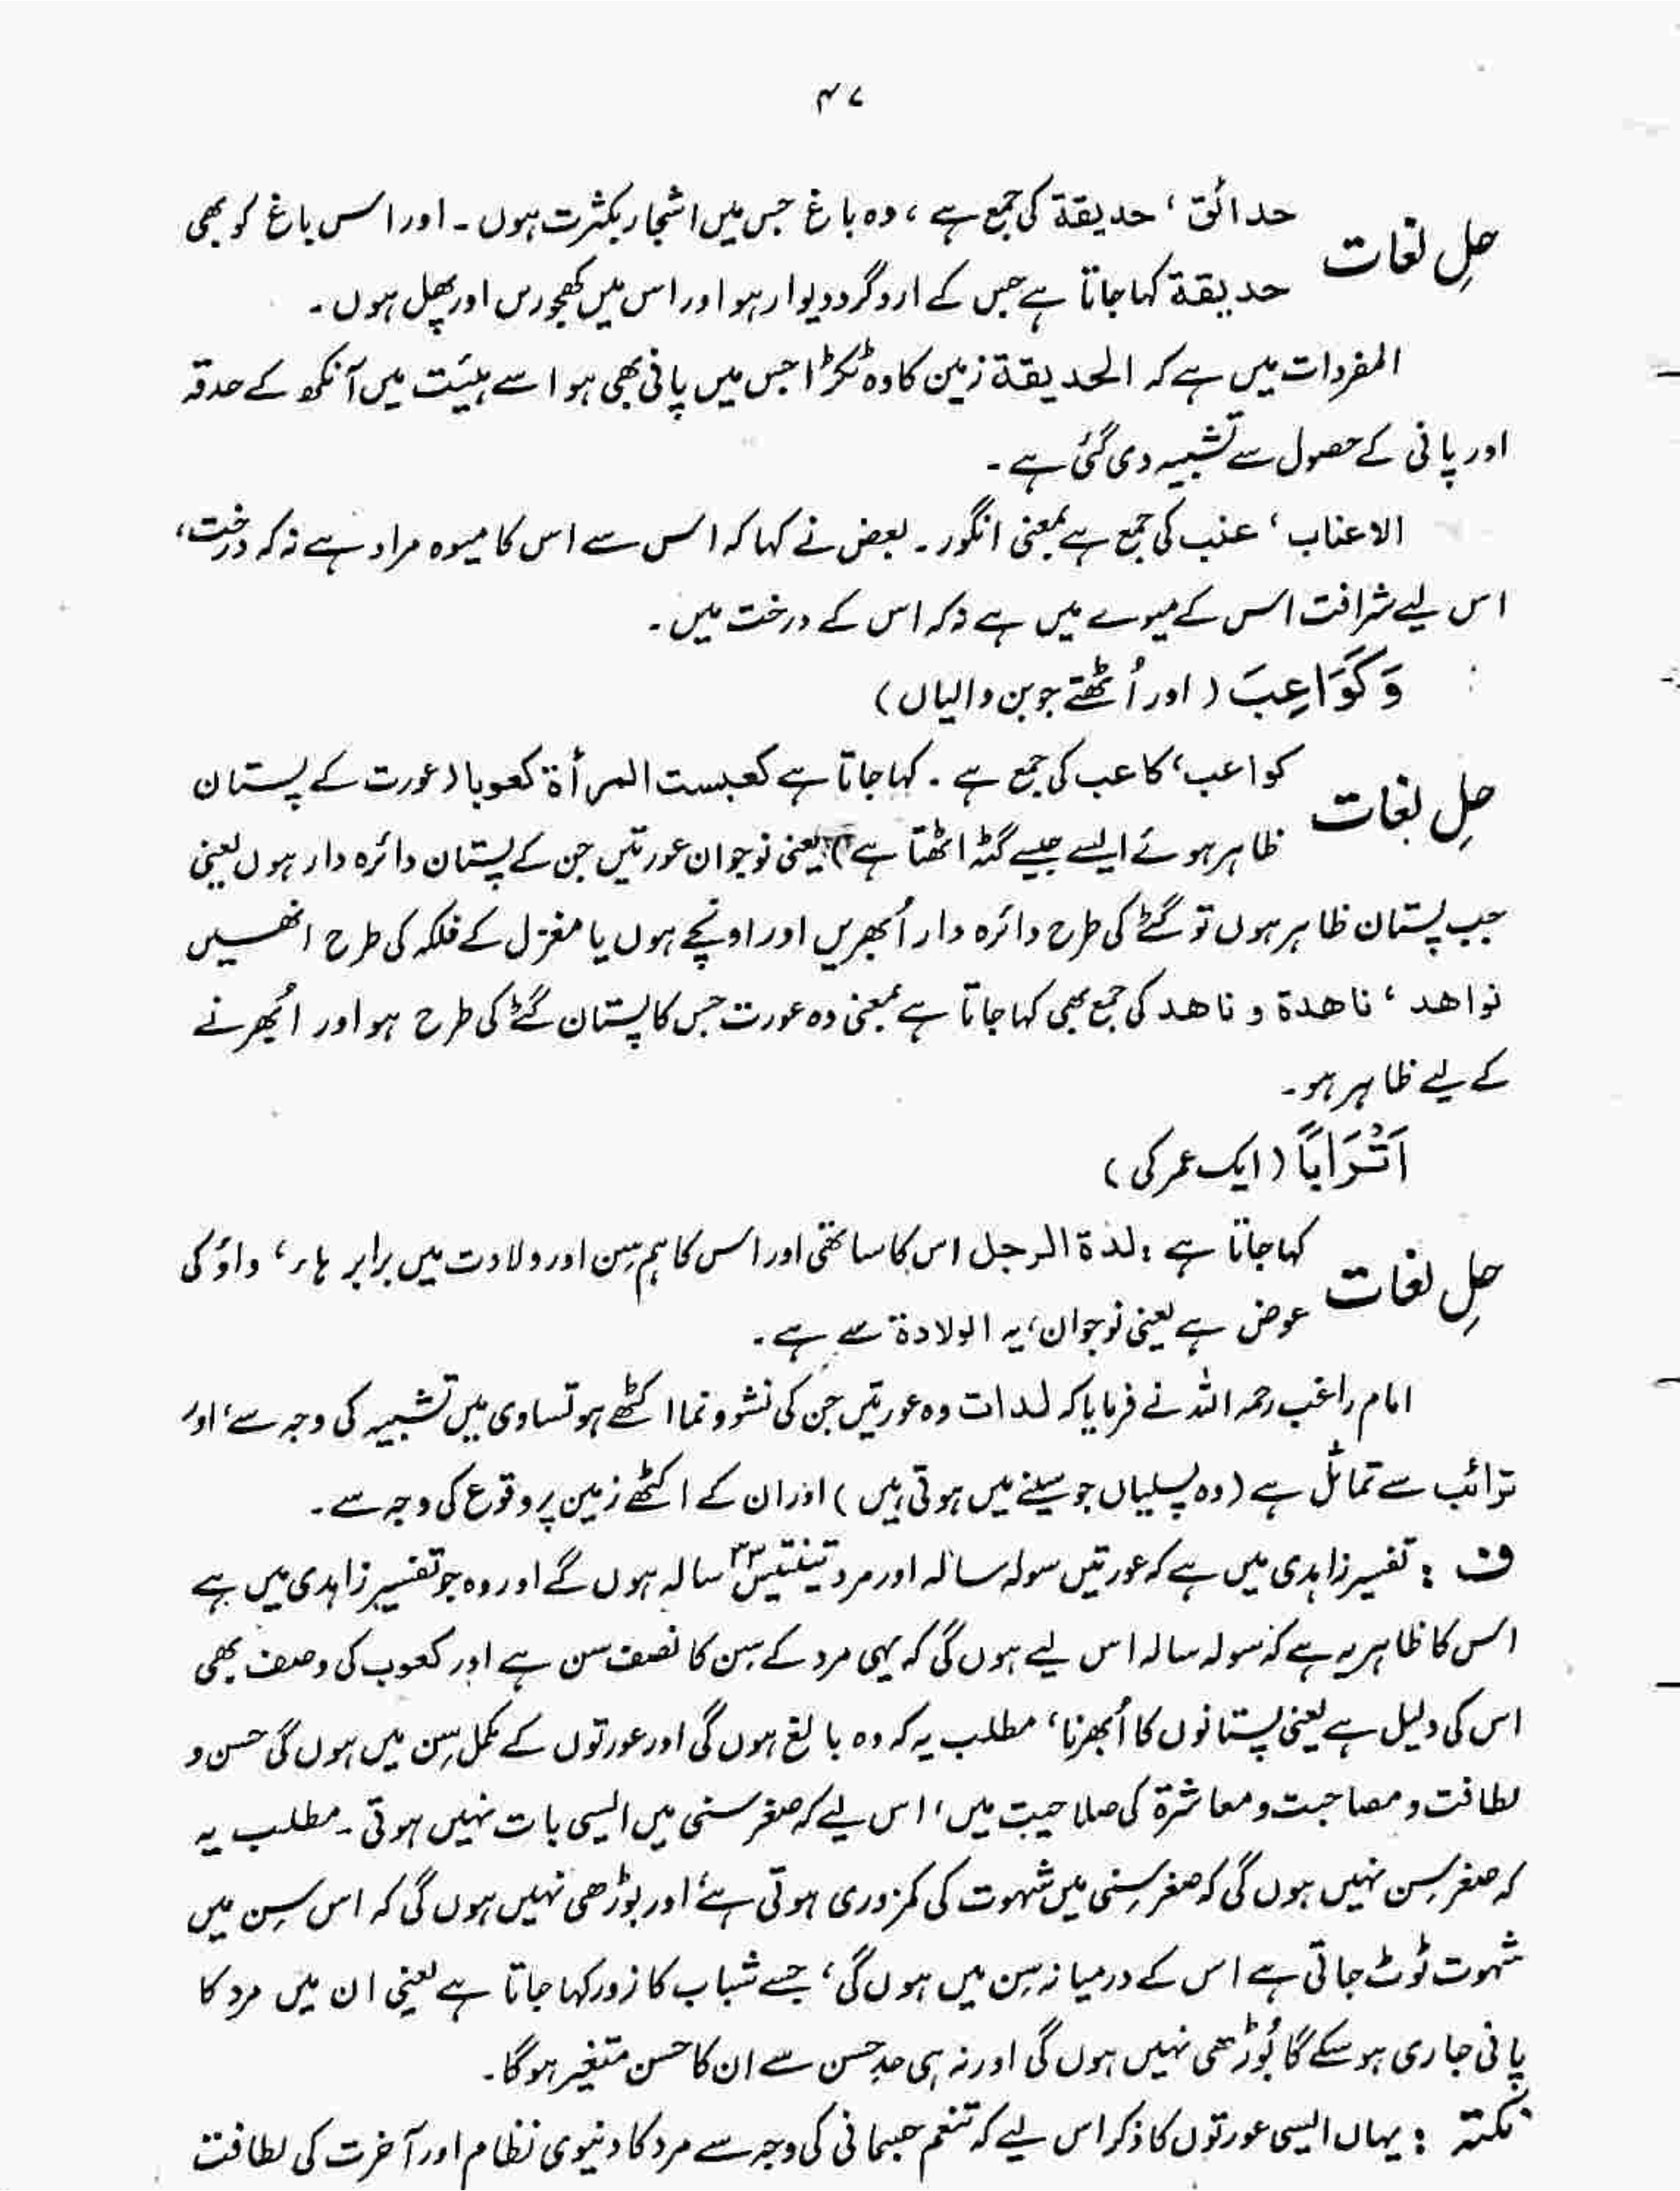 ۴۷
حلِ لغات
حدائق ، حدیقة کی جمع ہے ، وہ باغ جس میں اشجار بکثرت ہوں ۔ اور اس باغ کو بھی
حدیقة کہا جاتا ہے جس کے ارد گرد دیوار ہو اور اس میں کھجوریں اور پھل ہوں ۔
المفردات میں ہے کہ الحدیقة زمین کا وہ ٹکڑا جس میں پانی بھی ہو اسے ہیئت میں آنکھ کے حدقہ
اور پانی کے حصول سے تشبیہ دی گئی ہے ۔
الاعناب ، عنب کی جمع ہے بمعنی انگور ۔ بعض نے کہا کہ اس سے اس کا میوہ مراد ہے نہ کہ درخت ،
اس لیے شرافت اس کے میوے میں ہے نہ کہ اس کے درخت میں ۔
وَكَوَاعِبَ ( اور اُٹھتے جوبن والیاں )
حلِ لغات
کواعب ، کاعب کی جمع ہے ۔ کہا جاتا ہے کعبت المرأة کعوبا ( عورت کے پستان
ظاہر ہوئے ایسے جیسے گٹہ اٹھتا ہے ) یعنی نوجوان عورتیں جن کے پستان دائرہ دار ہوں یعنی
جب پستان ظاہر ہوں تو گٹے کی طرح دائرہ دار اُبھریں اور اونچے ہوں یا مغزل کے فلکہ کی طرح انھیں
نواهد ، ناهدة و ناهد کی جمع بھی کہا جاتا ہے بمعنی وہ عورت جس کا پستان گٹے کی طرح ہو اور اُبھرنے
کے لیے ظاہر ہو ۔
اَتْرَابًا ( ایک عمر کی )
حلِ لغات
کہا جاتا ہے : لدة الرجل اس کا ساتھی اور اس کا ہم سِن اور ولادت میں برابر ہاء ، واؤ کی
عوض ہے یعنی نوجوان ، یہ الولادة سے ہے ۔
امام راغب رحمہ اللہ نے فرمایا کہ لدات وہ عورتیں جن کی نشوونما اکٹھے ہو تساوی میں تشبیہ کی وجہ سے ، اور
ترائب سے تماثل ہے ( وہ پسلیاں جو سینے میں ہوتی ہیں ) اور ان کے اکٹھے زمین پر وقوع کی وجہ سے ۔
ف : تفسیر زاہدی میں ہے کہ عورتیں سولہ سالہ اور مرد تینتیس ۳۳ سالہ ہوں گے اور وہ جو تفسیر زاہدی میں ہے
اس کا ظاہر یہ ہے کہ سولہ سالہ اس لیے ہوں گی کہ یہی مرد کے سِن کا نصف سن ہے اور کعوب کی وصف بھی
اس کی دلیل ہے یعنی پستانوں کا اُبھرنا ، مطلب یہ کہ وہ بالغ ہوں گی اور عورتوں کے مکمل سِن میں ہوں گی حسن و
لطافت و مصاحبت و معاشرة کی صلاحیت میں ، اس لیے کہ صغر سنی میں ایسی بات نہیں ہوتی ۔ مطلب یہ
کہ صغر سِن نہیں ہوں گی کہ صغر سِنی میں شہوت کی کمزوری ہوتی ہے ، اور بوڑھی نہیں ہوں گی کہ اس سِن میں
شہوت ٹوٹ جاتی ہے اس کے درمیانہ سِن میں ہوں گی ، جسے شباب کا زور کہا جاتا ہے یعنی ان میں مرد کا
پانی جاری ہو سکے گا بُوڑھی نہیں ہوں گی اور نہ ہی حدِ حسن سے ان کا حسن متغیر ہوگا ۔
نکتہ : یہاں ایسی عورتوں کا ذکر اس لیے کہ تنعم جسمانی کی وجہ سے مرد کا دنیوی نظام اور آخرت کی لطافت